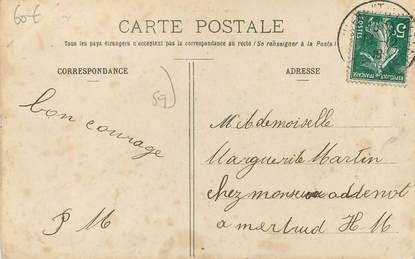 60 €
CARTE POSTALE
Tous les pays étrangers n'acceptent pas la correspondance au recto (Se renseigner à la Poste)
CORRESPONDANCE
ADRESSE
59
bon courage
P M
Mademoiselle
Marguerite Martin
chez monsieur addenot
a mertrud H. M
5c